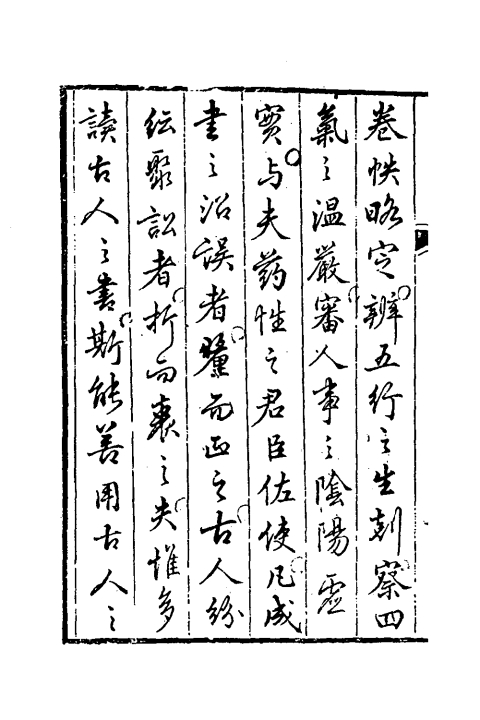 卷帙略定辨五行之生剋察四
氣之温嚴審人事之陰陽虛
實与夫葯性之君臣佐使凡成
書之沿誤者釐而正之古人紛
紜聚訟者折而衷之夫惟多
讀古人之書斯能善用古人之